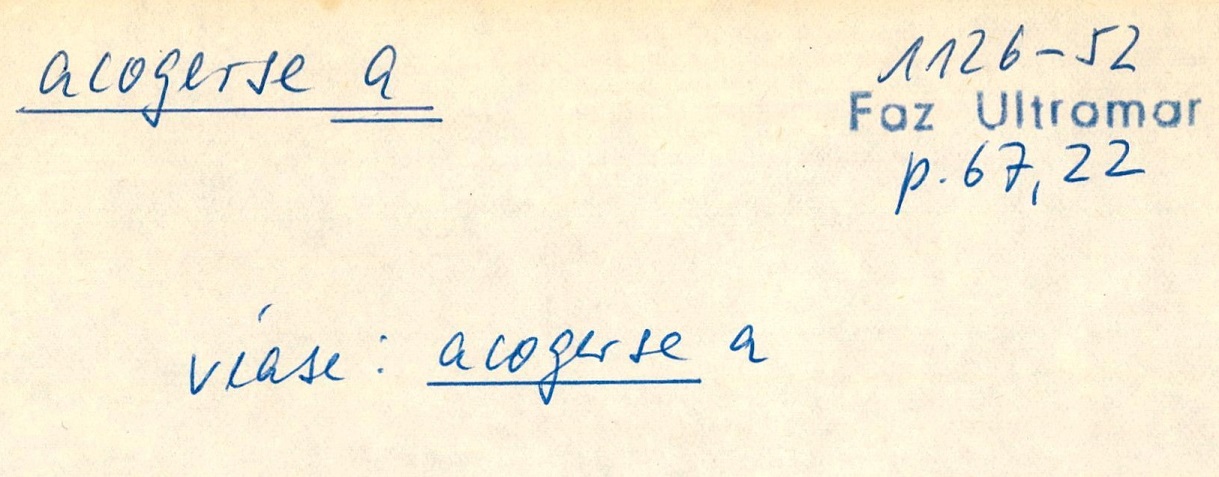 acogerse a
1126-52
Faz Ultramar
p. 67, 22
véase: acogerse a